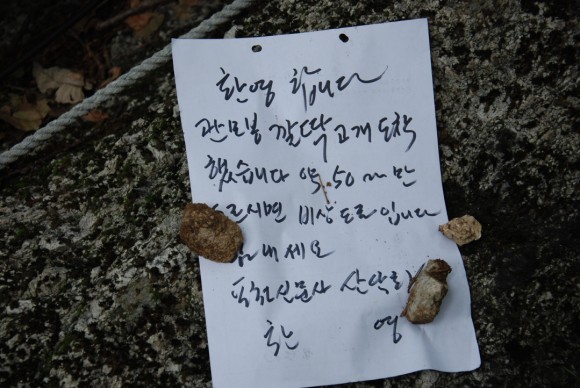 환영 합니다
관모봉 깔딱고개 도착
했습니다 약.50m만
오르시면 비상도로입니다
힘내세요
신문사 산악회
환 영